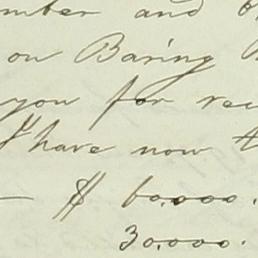 mber and
on Baring
you for rec
I have now t
— $ 60.000.
30.000.